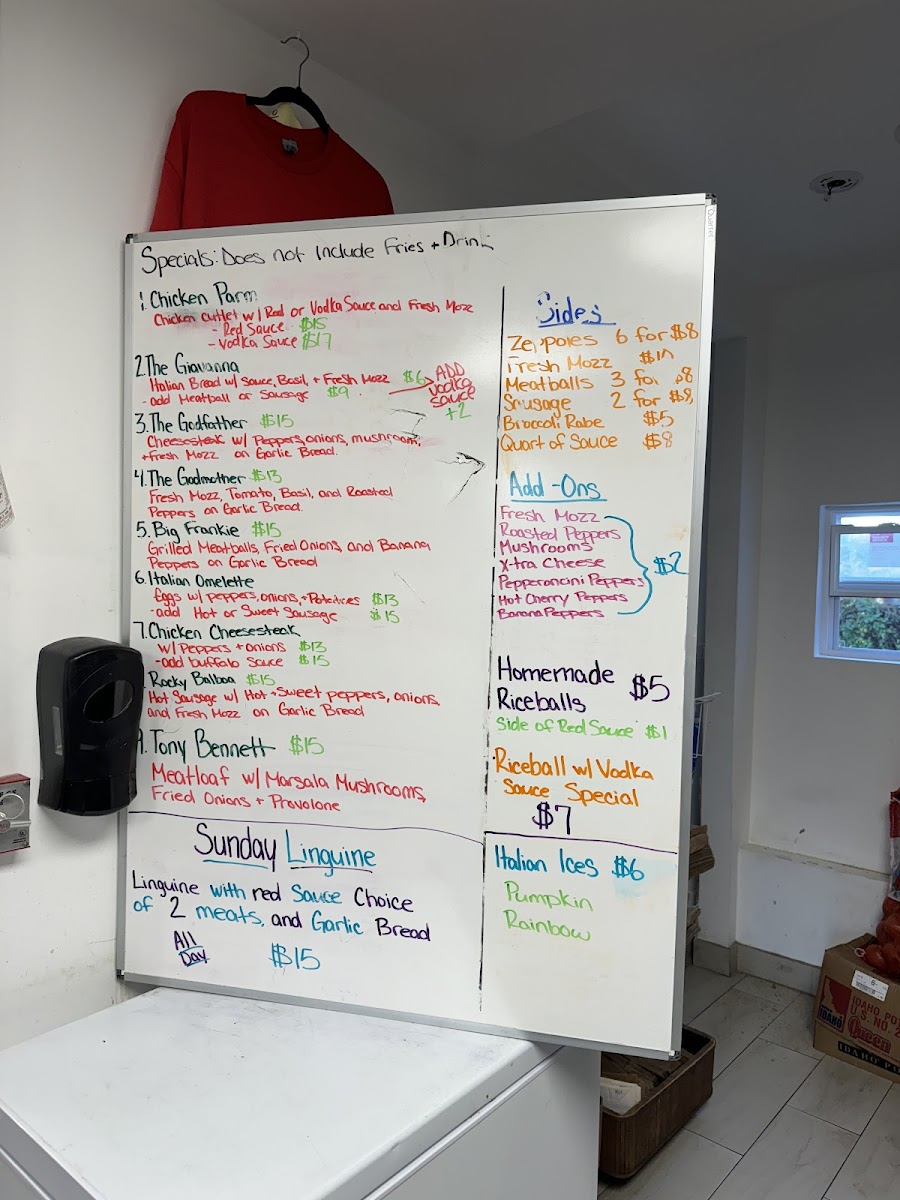 Specials: Does not Include Fries + Drink
1. Chicken Parm
Chicken cutlet w/ Red or Vodka Sauce and Fresh Mozz
- Red Sauce $15
- Vodka Sauce $17
2. The Giovanna
Italian Bread w/ Sauce, Basil, + Fresh Mozz $6
- add Meatball or Sausage $9
ADD
Vodka
Sauce
+2
3. The Godfather $15
Cheesesteak w/ Peppers, onions, mushroom,
+ Fresh Mozz on Garlic Bread.
4. The Godmother $13
Fresh Mozz, Tomato, Basil, and Roasted
Peppers on Garlic Bread
5. Big Frankie $15
Grilled Meatballs, Fried Onions, and Banana
Peppers on Garlic Bread
6. Italian Omelette
Eggs w/ peppers, onions, + Potatoes $13
- add Hot or Sweet Sausage $15
7. Chicken Cheesesteak
w/ Peppers + onions $13
- add buffalo sauce $15
Rocky Balboa $15
Hot Sausage w/ Hot + Sweet peppers, onions,
and Fresh Mozz on Garlic Bread
9. Tony Bennett $15
Meatloaf w/ Marsala Mushrooms,
Fried Onions + Provolone
Sunday Linguine
Linguine with red Sauce Choice
of 2 meats, and Garlic Bread
All
Day
$15
Sides
Zeppoles 6 for $8
Fresh Mozz $10
Meatballs 3 for $8
Sausage 2 for $8
Broccoli Rabe $5
Quart of Sauce $8
Add-Ons
Fresh Mozz
Roasted Peppers
Mushrooms
X-tra Cheese
Pepperoncini Peppers
Hot Cherry Peppers
Banana Peppers
$2
Homemade
Riceballs $5
Side of Red Sauce $1
Riceball w/ Vodka
Sauce Special
$7
Italian Ices $6
Pumpkin
Rainbow
Quartet
IDAHO
Queen